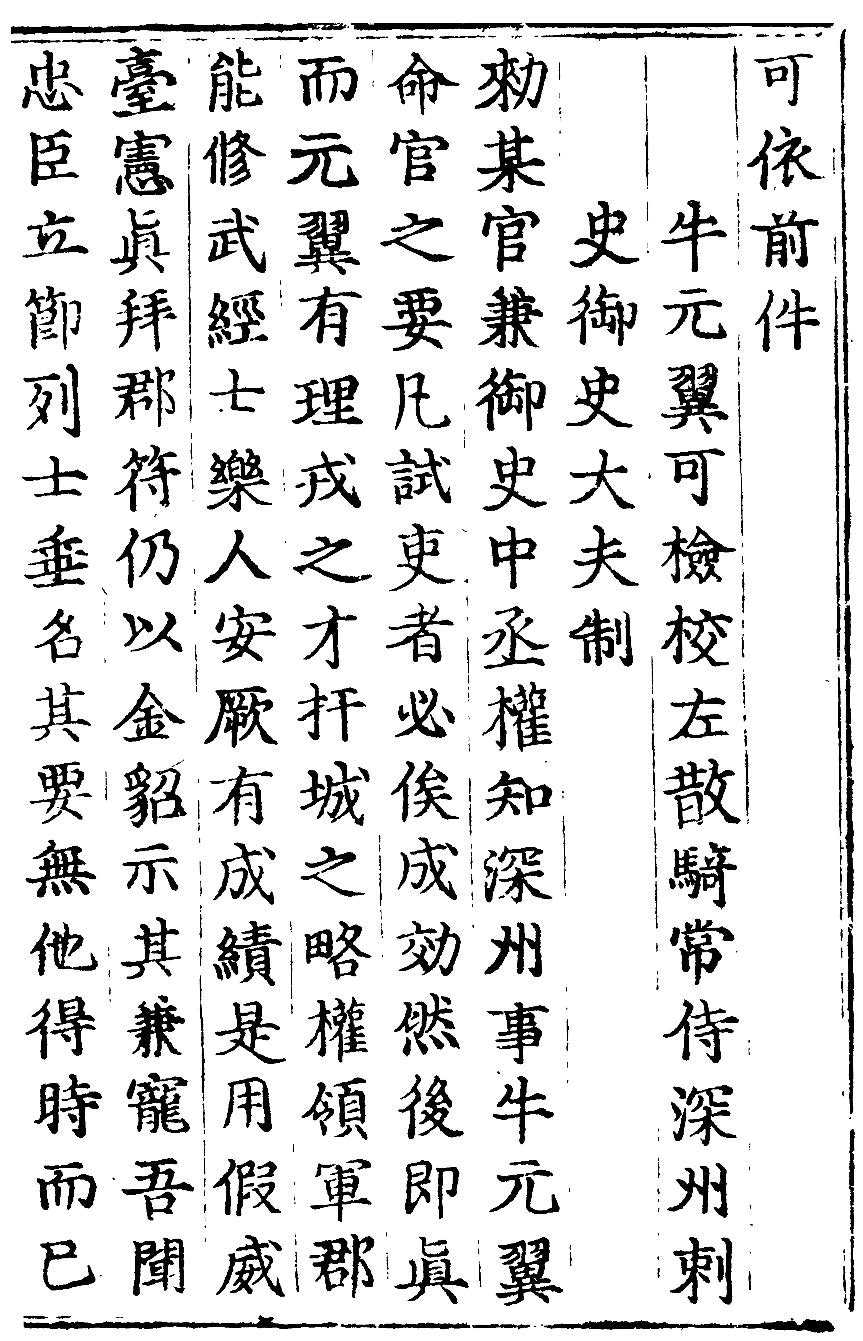 可依前件
牛元翼可檢校左散騎常侍深州刺
史御史大夫制
勑某官兼御史中丞權知深州事牛元翼
命官之要凡試吏者必俟成効然後即眞
而元翼有理戎之才扞城之略權領軍郡
能修武經士樂人安厥有成績是用假威
臺憲眞拜郡符仍以金貂示其兼寵吾聞
忠臣立節列士垂名其要無他得時而已